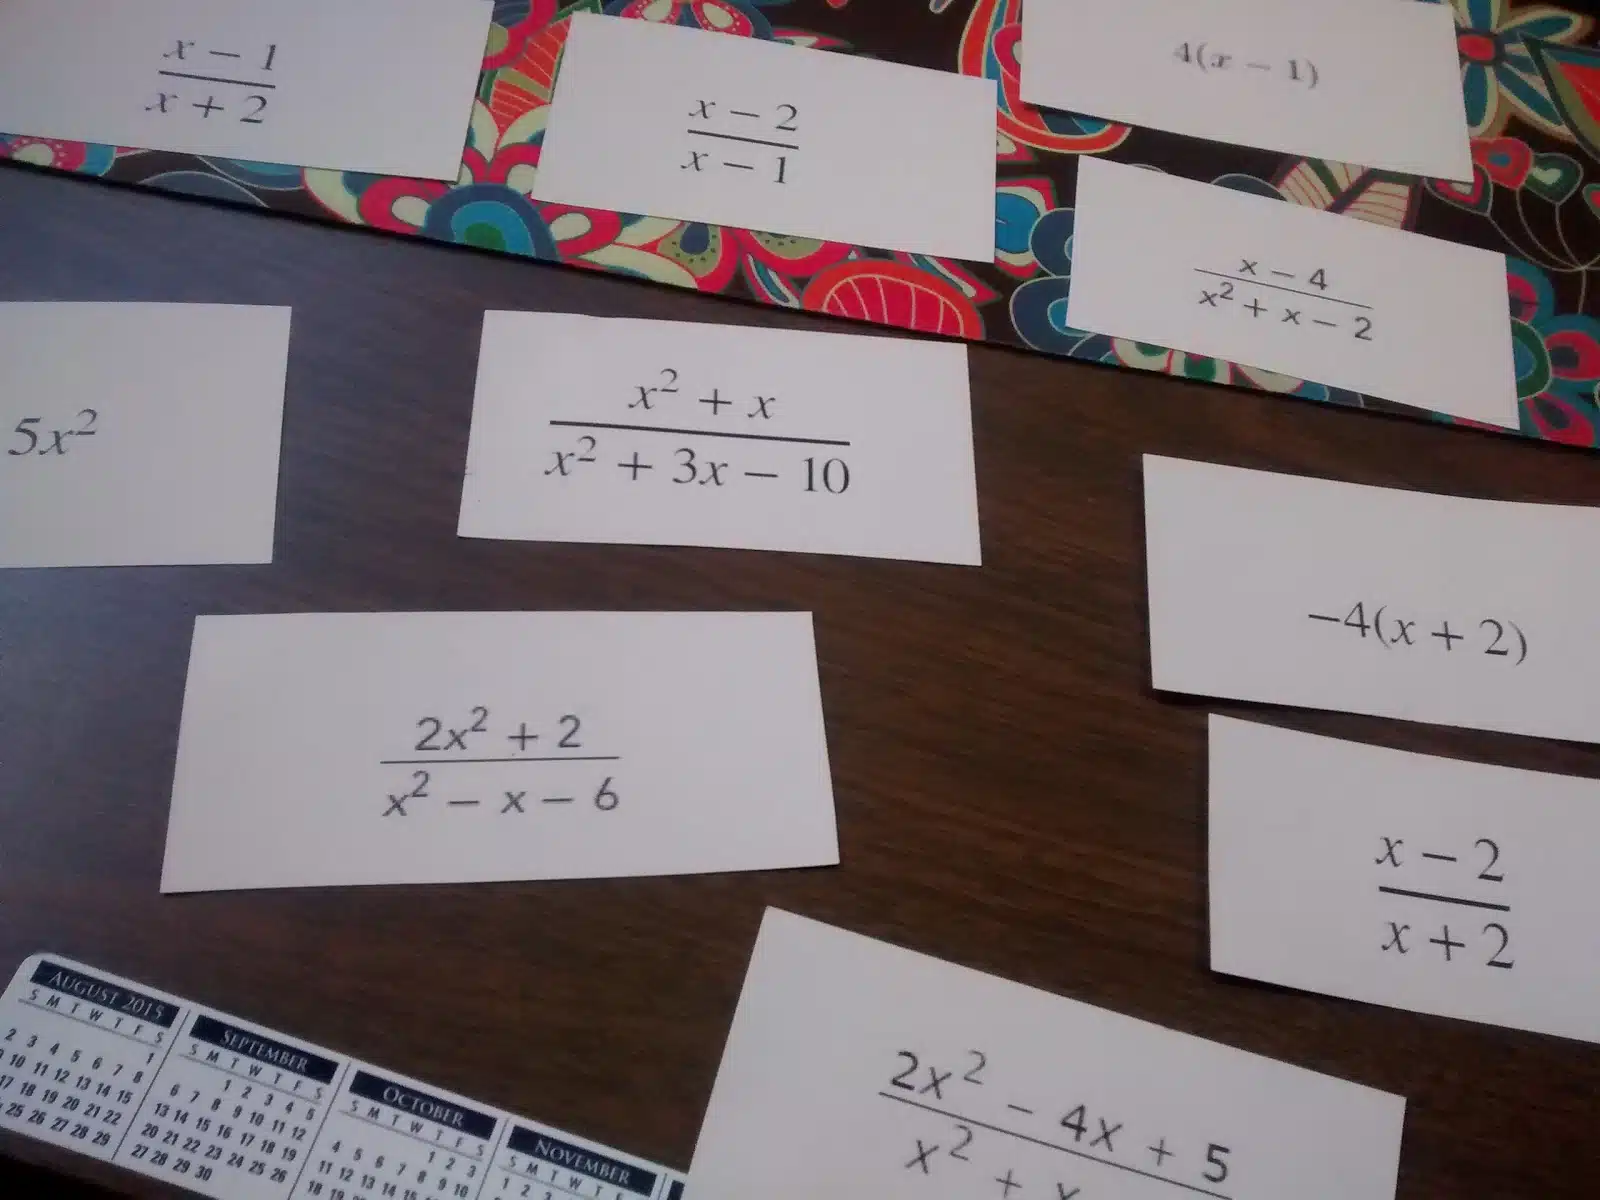 x − 1
x + 2
x − 2
x − 1
4(x − 1)
x − 4
x² + x − 2
5x²
x² + x
x² + 3x − 10
−4(x + 2)
2x² + 2
x² − x − 6
x − 2
x + 2
2x² − 4x + 5
x² + x
AUGUST 2015
S M T W T F S
1
2 3 4 5 6 7 8
10 11 12 13 14 15
17 18 19 20 21 22
25 26 27 28 29
SEPTEMBER
S M T W T F S
1 2 3 4 5
6 7 8 9 10 11 12
13 14 15 16 17 18 19
20 21 22 23 24 25 26
27 28 29 30
OCTOBER
S M T W T F S
1 2 3
4 5 6 7 8 9 10
11 12 13 14 15 16
18 19
NOVEMBER
S M T W T F
1 2 3